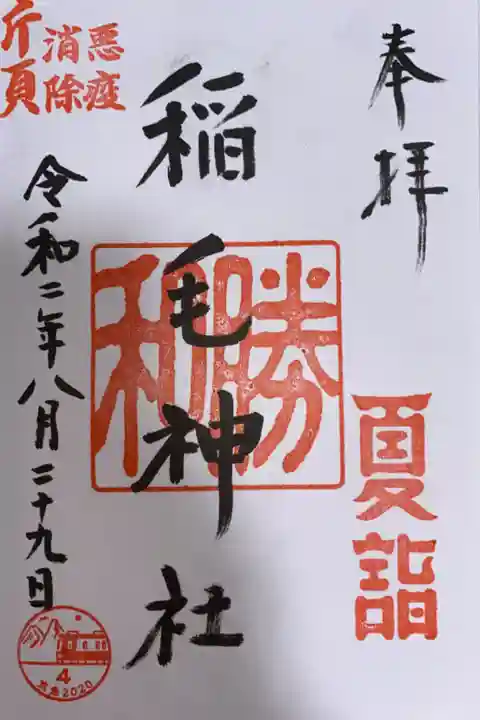 奉拝
夏詣
稲毛神社
勝和
悪疫
消除
祈願
令和二年八月二十九日
4
2020